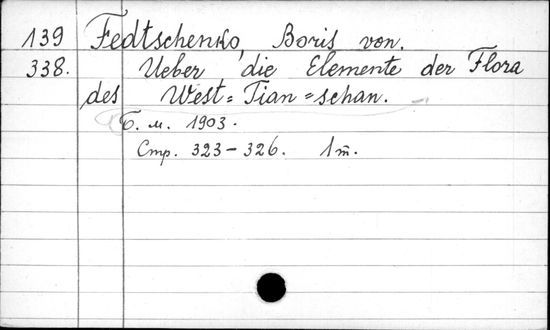 139 Fedtschenko, Boris von.
338. Ueber die Elemente der Flora
des West=Tian=schan.
Б. м. 1903.
Стр. 323-326. 1 т̄.